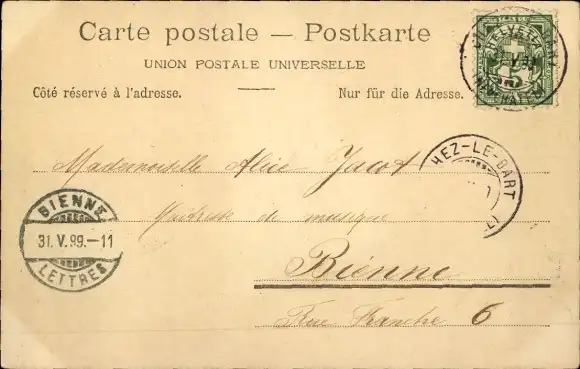 Carte postale — Postkarte
UNION POSTALE UNIVERSELLE
Côté réservé à l'adresse. Nur für die Adresse.
HELVETIA
5
Mademoiselle Alice Jacot
HEZ-LE-BART
Maîtresse de musique
BIENNE
31. V. 99.–11
LETTRES
Bienne
Rue Franche 6